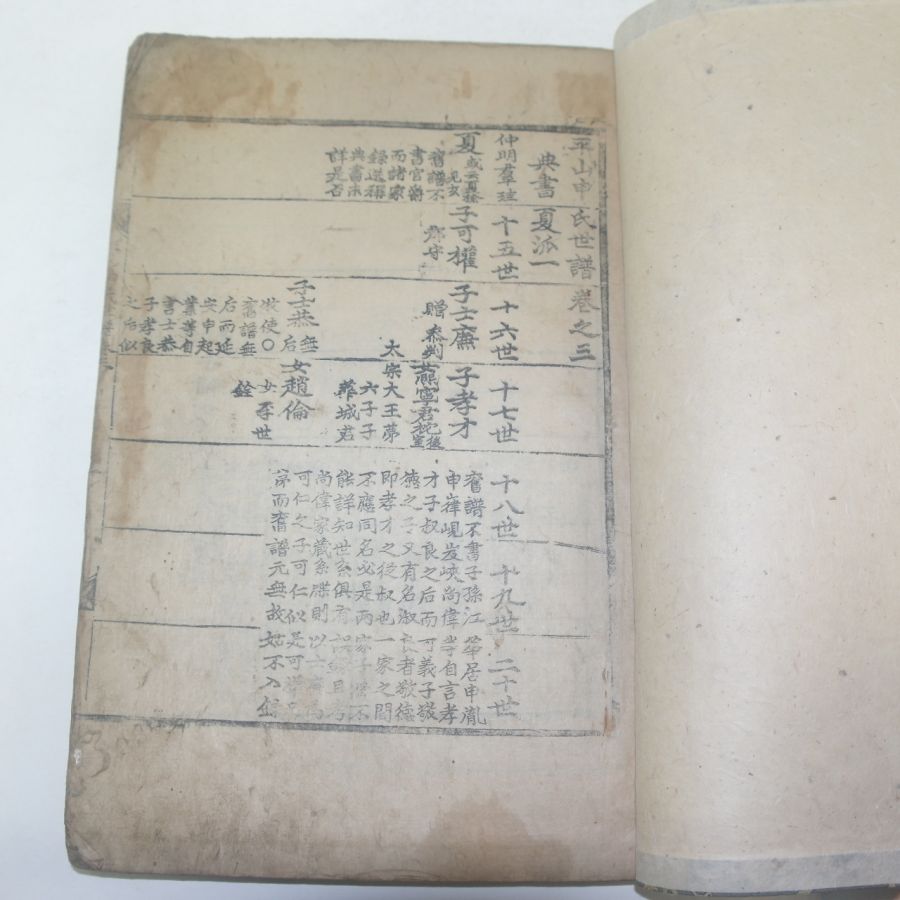 平山申氏世譜卷之三
典書夏派一
仲明羣珪
夏
舊譜不
書官爵
而諸家
錄還稱
典書未
詳是否
十五世
子可權
郡守
十六世
子士廉
贈參判
子士恭無后
牧使○
舊譜無
后而延
安申起
業等自
言士恭
子孝良
之后似
十七世
子孝才
熙寧君袉後室
太宗大王第
六子子
葬城君
女趙倫
女李世
銓
十八世
十九世
二十世
舊譜不書子孫江華居申胤
申嶷峴岌峽尚偉等自言孝
才子叔良之后而可義子敬
德之子又有名淑良者敬德
即孝才之從叔也一家之間
不應同名必是兩家子孫不
能詳知世系俱有誤錄且考
尚偉家藏系牒則以士廉爲
可仁之子可仁似是可權兄
弟而舊譜元無故姑不入錄